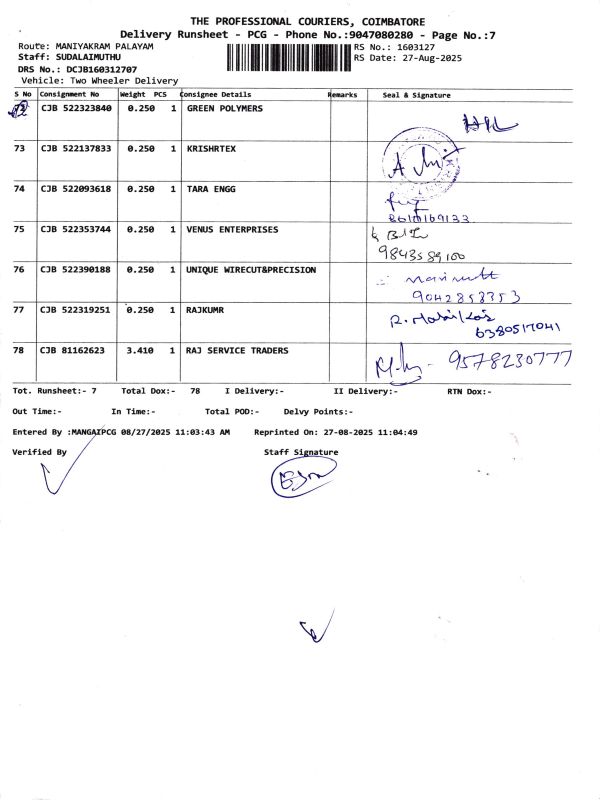 THE PROFESSIONAL COURIERS, COIMBATORE
Delivery Runsheet - PCG - Phone No.:9047080280 - Page No.:7
Route: MANIYAKRAM PALAYAM RS No.: 1603127
Staff: SUDALAIMUTHU RS Date: 27-Aug-2025
DRS No.: DCJB160312707
Vehicle: Two Wheeler Delivery
S No Consignment No Weight PCS Consignee Details Remarks Seal & Signature
72 CJB 522323840 0.250 1 GREEN POLYMERS
73 CJB 522137833 0.250 1 KRISHRTEX
74 CJB 522093618 0.250 1 TARA ENGG
8610169133
75 CJB 522353744 0.250 1 VENUS ENTERPRISES
9843589100
76 CJB 522390188 0.250 1 UNIQUE WIRECUT&PRECISION
9042853353
77 CJB 522319251 0.250 1 RAJKUMR
6380517041
78 CJB 81162623 3.410 1 RAJ SERVICE TRADERS 9578230777
Tot. Runsheet:- 7 Total Dox:- 78 I Delivery:- II Delivery:- RTN Dox:-
Out Time:- In Time:- Total POD:- Delvy Points:-
Entered By :MANGAIPCG 08/27/2025 11:03:43 AM Reprinted On: 27-08-2025 11:04:49
Verified By Staff Signature